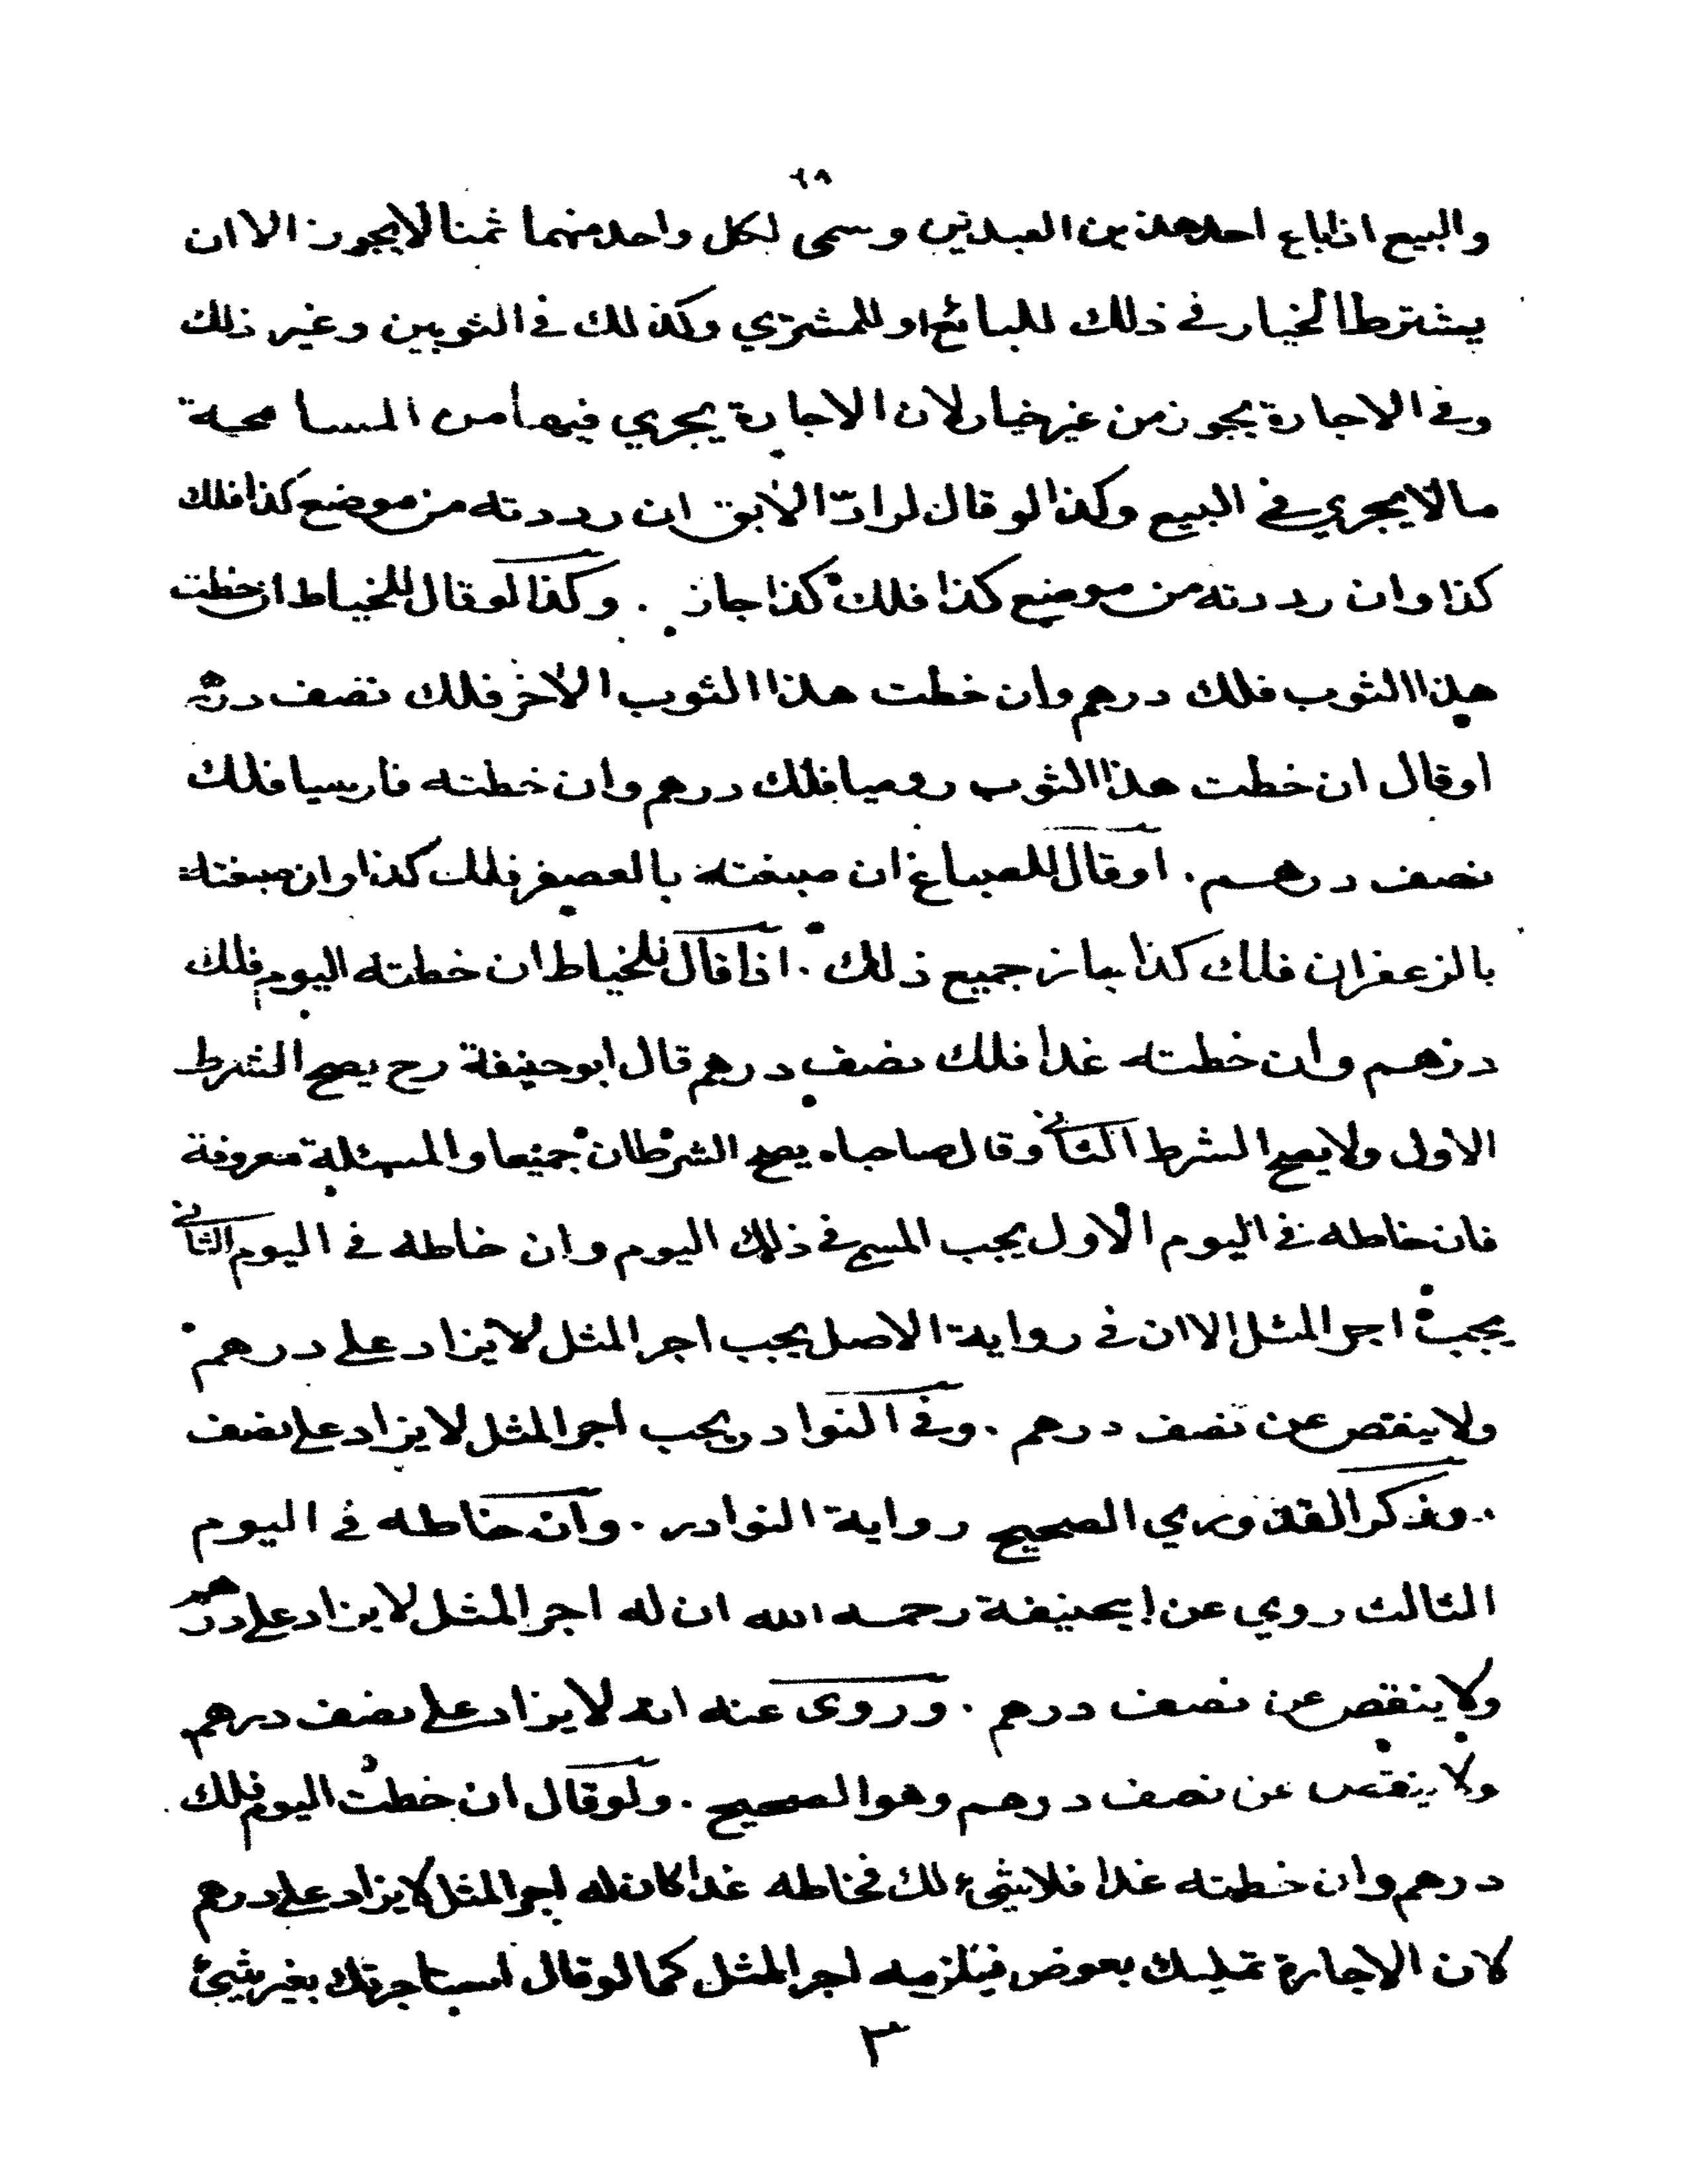 ٦٨
والبيع اذا باع احد هذين العبدين وسمى لكل واحد منهما ثمنا لا يجوز الا ان
يشترط الخيار في ذلك للبائع او للمشتري وكذلك في الثوبين وغير ذلك
وفي الاجارة يجوز من غير خيار لان الاجارة يجري فيها من المسامحة
ما لا يجري في البيع وكذا لو قال لرادّ الآبق ان رددته من موضع كذا فلك
كذا وان رددته من موضع كذا فلك كذا جاز . وكذا لو قال للخياط ان خطت
هذا الثوب فلك درهم وان خطت هذا الثوب الآخر فلك نصف درهم
او قال ان خطت هذا الثوب روميا فلك درهم وان خطته فارسيا فلك
نصف درهم . او قال للصباغ ان صبغته بالعصفر فلك كذا وان صبغته
بالزعفران فلك كذا جاز جميع ذلك . اذا قال للخياط ان خطته اليوم فلك
درهم وان خطته غدا فلك نصف درهم قال ابو حنيفة رح يصح الشرط
الاول ولا يصح الشرط الثاني وقال صاحباه يصح الشرطان جميعا والمسئلة معروفة
فان خاطه في اليوم الاول يجب المسمى في ذلك اليوم وان خاطه في اليوم الثاني
يجب اجر المثل الا ان في رواية الاصل يجب اجر المثل لا يزاد على درهم
ولا ينقص عن نصف درهم . وفي النوادر يجب اجر المثل لا يزاد على نصف
.. وذكر القدوري الصحيح رواية النوادر . وان خاطه في اليوم
الثالث روي عن ابيحنيفة رحمه الله ان له اجر المثل لا يزاد على درهم
ولا ينقص عن نصف درهم . وروى عنه انه لا يزاد على نصف درهم
ولا ينقص عن نصف درهم وهو الصحيح . ولو قال ان خطت اليوم فلك
درهم وان خطته غدا فلا شيء لك فخاطه غدا كان له اجر المثل لا يزاد على درهم
لان الاجارة تمليك بعوض فيلزمه اجر المثل كما لو قال استاجرتك بغير شيئ
٣